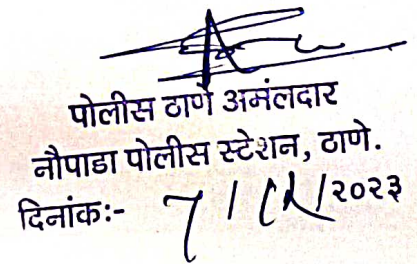 पोलीस ठाणे अमंलदार
नौपाडा पोलीस स्टेशन, ठाणे.
दिनांक:- 7 / /२०२३